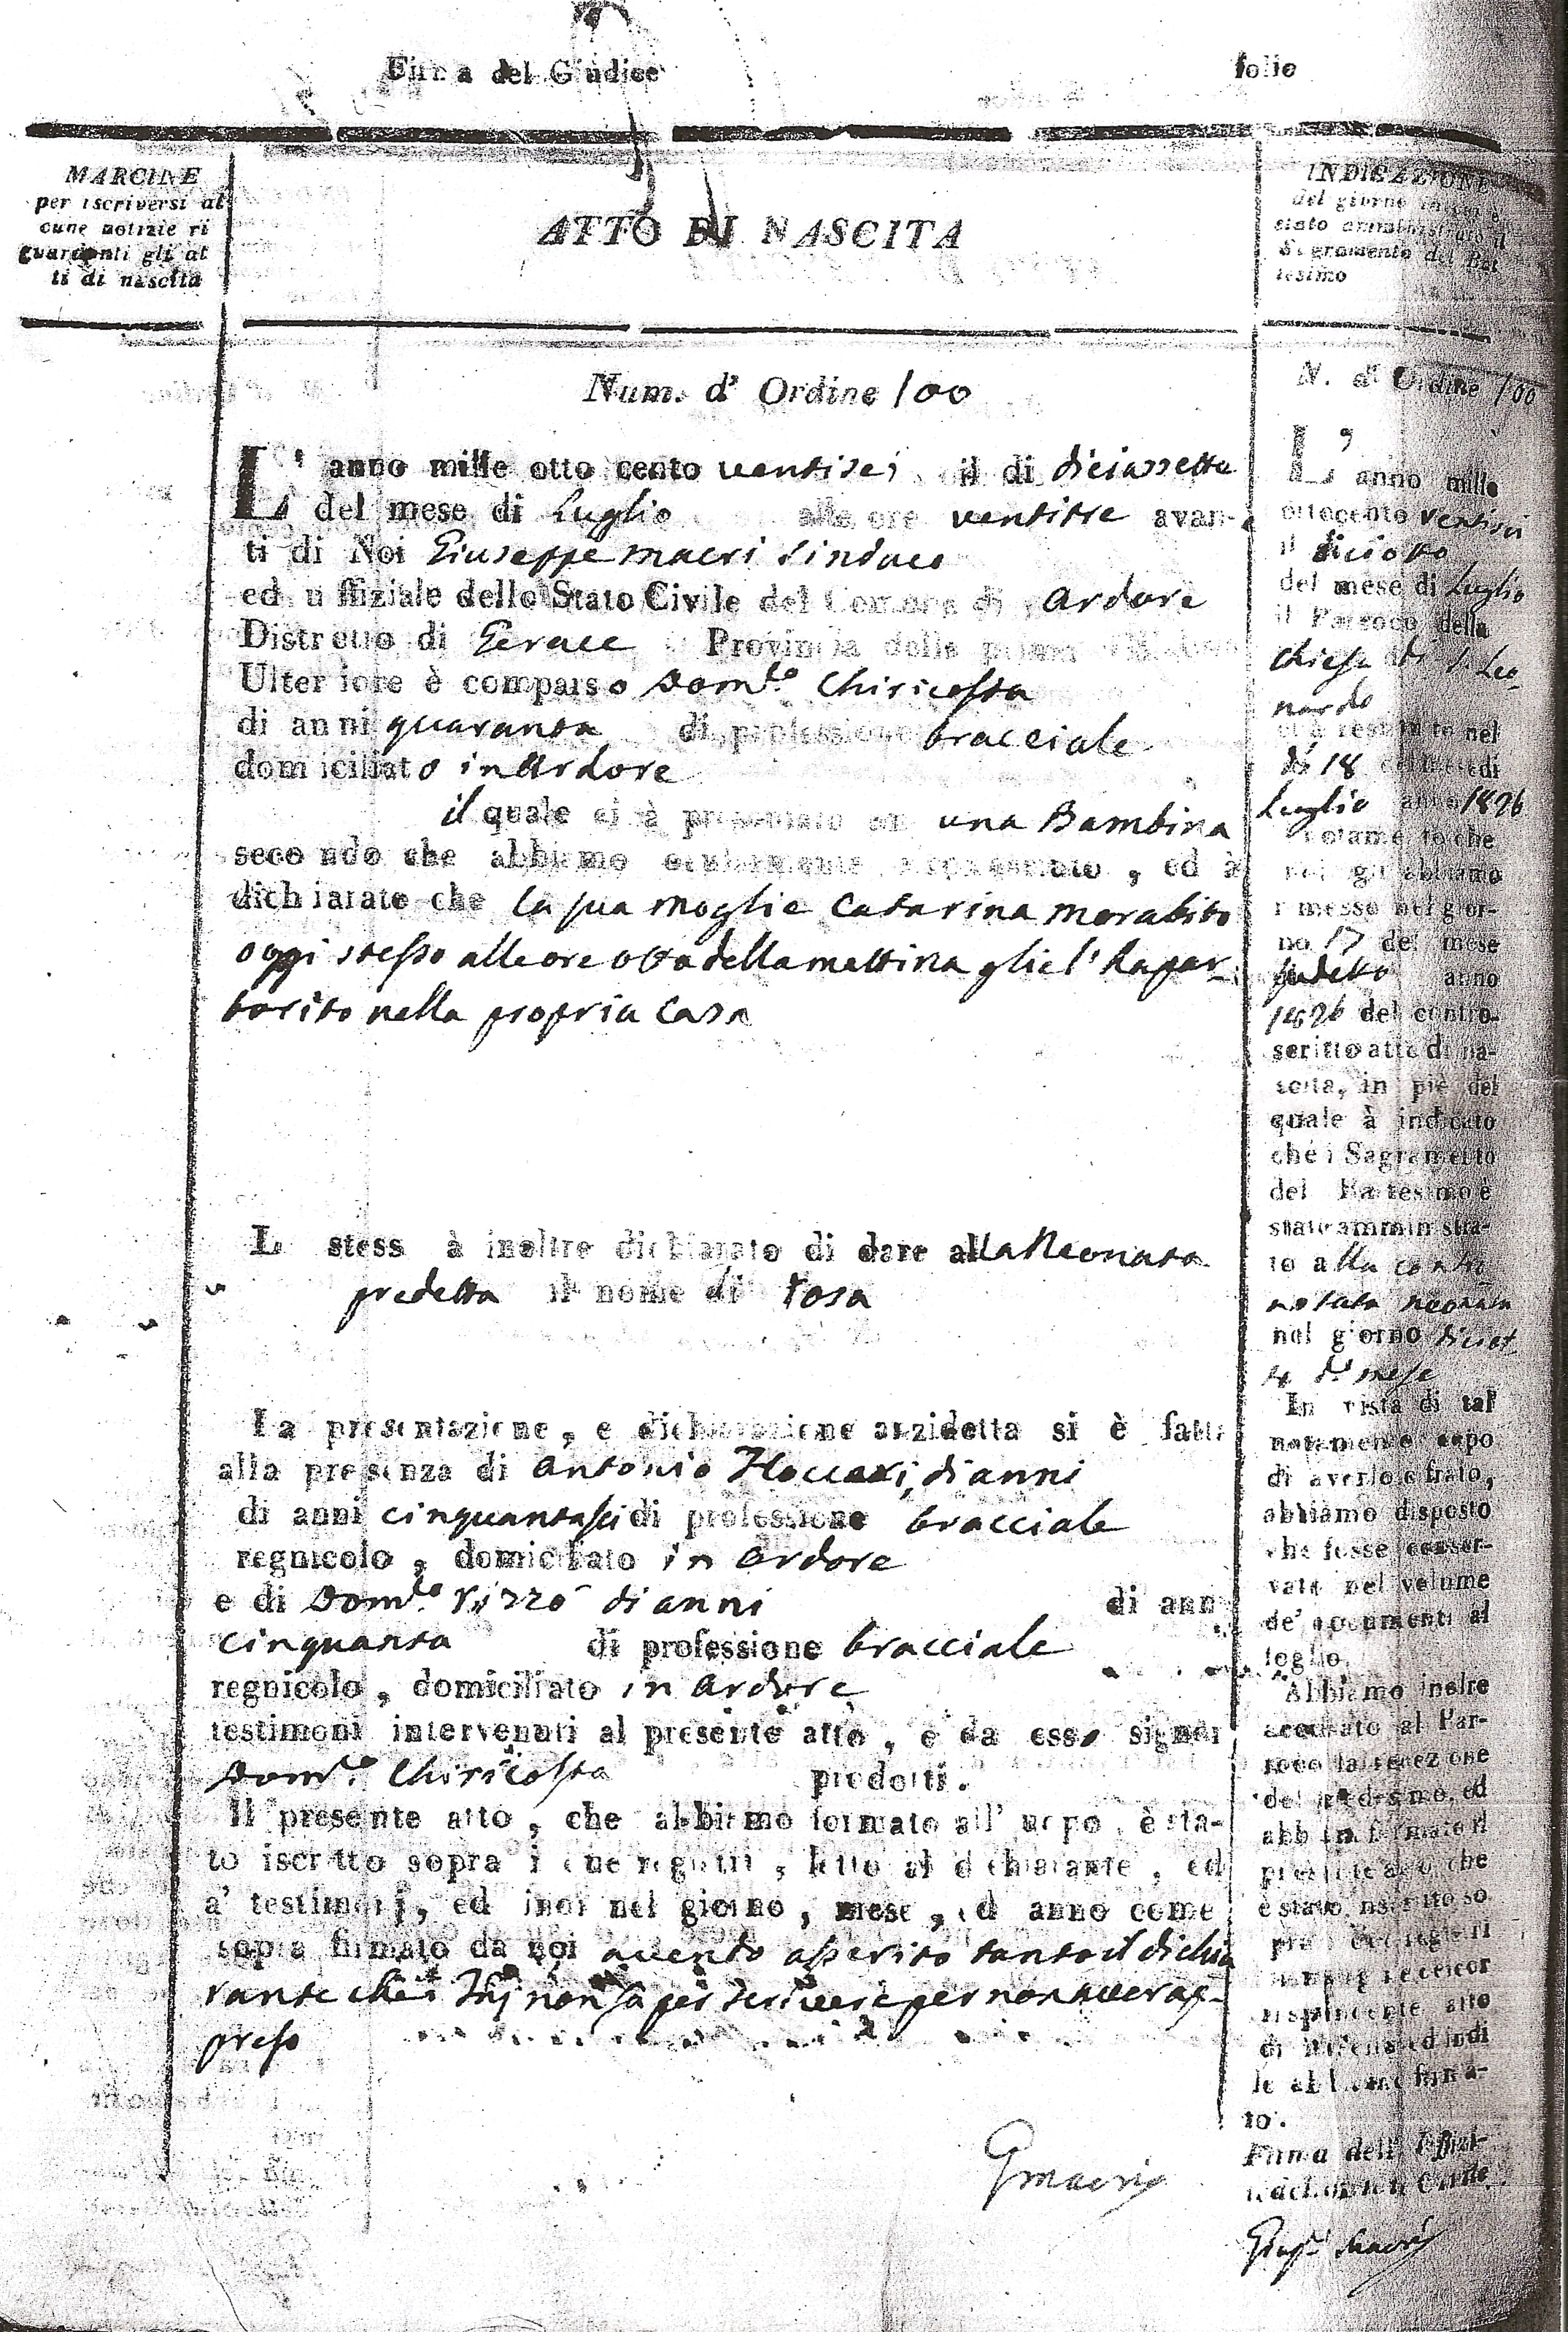 Firma del Giudice
folio
MARGINE
per iscriversi al
cune notizie ri
guardanti gli at
ti di nascita
ATTO DI NASCITA
INDICAZIONE
del giorno in cui è
stato amministrato il
Sagramento del Bat
tesimo
Num. d' Ordine 100
L' anno mille otto cento ventisei il di diciassette
del mese di Luglio alle ore ventitre avan-
ti di Noi Giuseppe Macri Sindaco
ed uffiziale dello Stato Civile del Comune di Ardore
Distretto di Gerace Provincia della prima
Ulteriore è comparso Dom.co Chiricosta
di anni quaranta di professione bracciale
domiciliato in Ardore
il quale ci à presentato una Bambina
secondo che abbiamo ocularmente riconosciuto, ed à
dichiarato che la sua moglie Catarina Morabito
oggi stesso alle ore otto della mattina gliel' ha par-
torito nella propria casa
L stess à inoltre dichiarato di dare alla Neonata
predetta il nome di rosa
La presentazione, e dichiarazione anzidetta si è fatta
alla presenza di Antonio di anni
di anni cinquantasei di professione bracciale
regnicolo, domiciliato in Ardore
e di Dom.co di anni di ann
cinquanta di professione bracciale
regnicolo, domiciliato in Ardore
testimoni intervenuti al presente atto, e da esso signor
Dom.co Chiricosta prodotti.
Il presente atto, che abbiamo formato all' uopo, è sta-
to iscritto sopra i due registri, letto al dichiarante, ed
a' testimonj, ed indi nel giorno, mese, ed anno come
sopra firmato da noi avendo asserito tanto il dichia
rante che i non per scrivere per non aver ap-
preso
GMacri
N. d' Ordine 100
L' anno mille
ottocento ventisei
il diciotto
del mese di Luglio
il Parroco della
Chiesa di S. Leo-
nardo
ci à restituito nel
dì 18 del mese di
Luglio anno 1826
notamento che
noi gli abbiamo
rimesso nel gior-
no 17 del mese
sudetto anno
1826 del contro-
scritto atto di na-
scita, in piè del
quale à indicato
che i Sagramento
del Battesimo è
stato amministra-
to alla contro
notata neonata
nel giorno diciot
to d.o mese
In vista di tal
notamento dopo
di averlo cifrato,
abbiamo disposto
che fosse conser-
vato nel volume
de' documenti al
foglio.
Abbiamo inoltre
accusato al Par-
roco la recezione
del medesimo, ed
abbiam formato il
presente atto che
è stato inscritto so
pra i due registri
in margine del cor
rispondente atto
di nascita ed indi
lo abbiamo firma-
to.
Firma dell' Uffizi-
le dello Stato Civile
Gius.e Macri